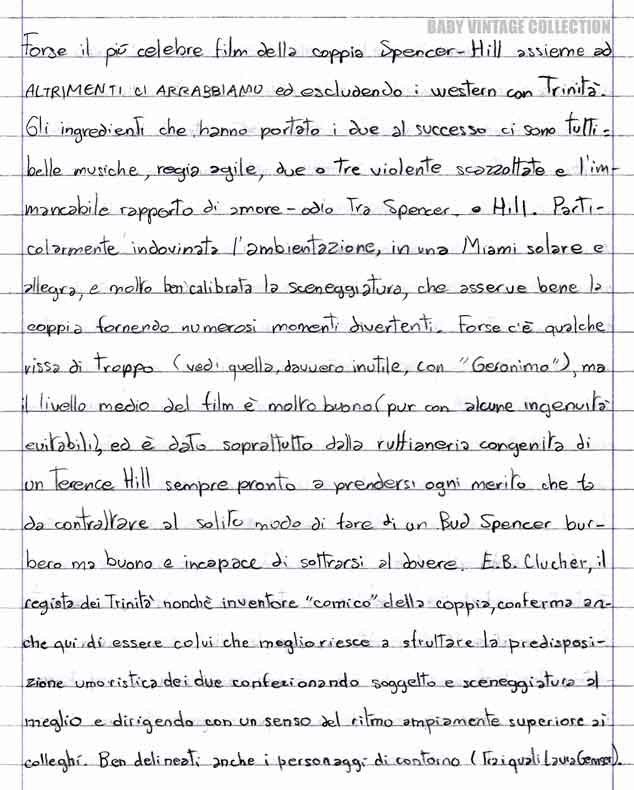 BABY VINTAGE COLLECTION
Forse il più celebre film della coppia Spencer-Hill assieme ad
ALTRIMENTI CI ARRABBIAMO ed escludendo i western con Trinità.
Gli ingredienti che hanno portato i due al successo ci sono tutti:
belle musiche, regia agile, due o tre violente scazzottate e l'im-
mancabile rapporto di amore-odio tra Spencer e Hill. Parti-
colarmente indovinata l'ambientazione, in una Miami solare e
allegra, e molto ben calibrata la sceneggiatura, che asserve bene la
coppia fornendo numerosi momenti divertenti. Forse c'è qualche
rissa di troppo (vedi quella, davvero inutile, con "Geronimo"), ma
il livello medio del film è molto buono (pur con alcune ingenuità
evitabili), ed è dato soprattutto dalla ruffianeria congenita di
un Terence Hill sempre pronto a prendersi ogni merito che fa
da contraltare al solito modo di fare di un Bud Spencer bur-
bero ma buono e incapace di sottrarsi al dovere. E.B. Clucher, il
regista dei Trinità nonchè inventore "comico" della coppia, conferma an-
che qui di essere colui che meglio riesce a sfruttare la predisposi-
zione umoristica dei due confezionando soggetto e sceneggiatura al
meglio e dirigendo con un senso del ritmo ampiamente superiore ai
colleghi. Ben delineati anche i personaggi di contorno (Tra i quali Laura Gemser).